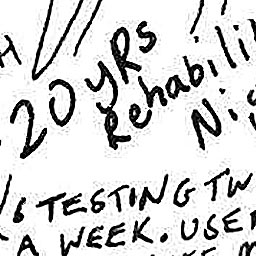 20 yRs
Rehabili
Ni
TESTING TW
A WEEK. USE